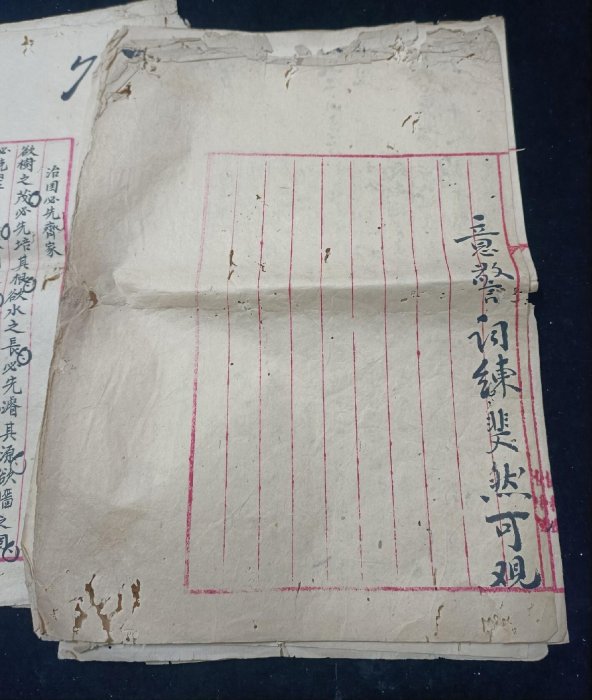 意警词練斐然可观
治国必先齊家
欲樹之茂必先培其根欲水之長必先濬其源欲墙之